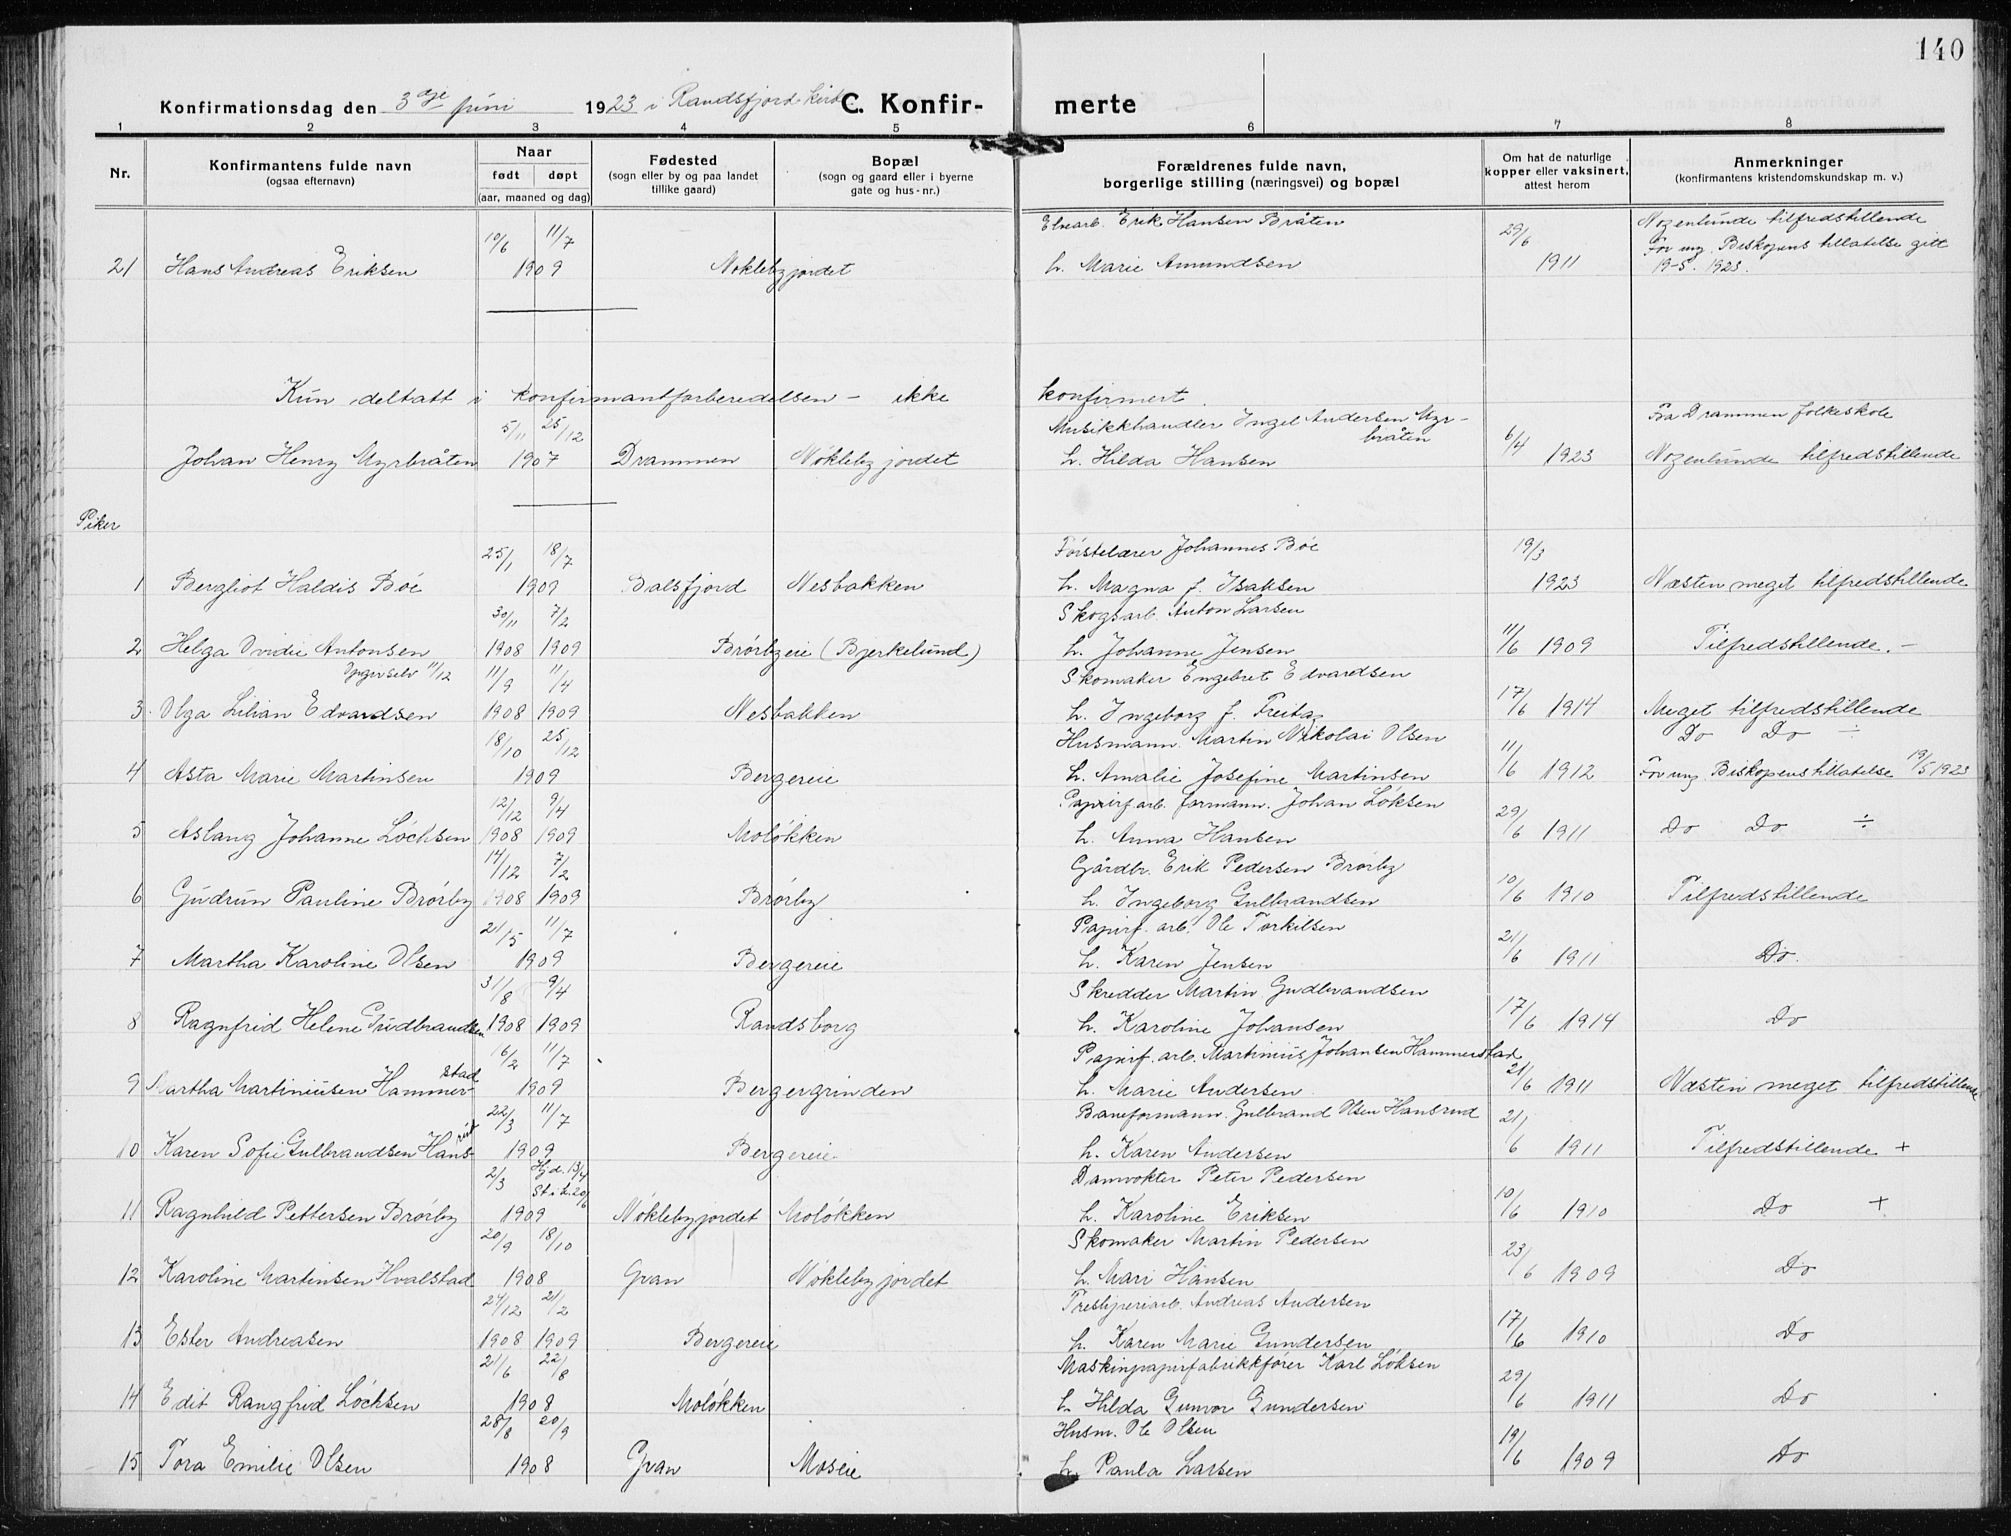 140
Konfirmationsdag den 3dje juni 1923 i Randsfjord kirke C. Konfir- merte
1 2 3 4 5 6 7 8
Nr. Konfirmantens fulde navn (ogsaa efternavn) Naar født døpt (aar, maaned og dag) Fødested (sogn eller by og paa landet tillike gaard) Bopæl (sogn og gaard eller i byerne gate og hus-nr.) Forældrenes fulde navn, borgerlige stilling (næringsvei) og bopæl Om hat de naturlige kopper eller vaksinert, attest herom Anmerkninger (konfirmantens kristendomskundskap m. v.)
10/6 11/7 Elvearb. Erik Hansen Bråten 29/6 Nogenlunde tilfredstillende
For ung. Biskopens tillatelse gitt
21 Hans Andreas Eriksen 1909 Nøklebyjordet h. Marie Amundsen 1911 19-5. 1923.
Kun deltatt i konfirmantforberedelsen - ikke konfirmert.
5/11 25/12 Musikkhandler Ingel Andersen Myr- Fra Drammen folkeskole
bråten
Johan Henry Myrbråten 1907 Drammen Nøklebyjordet h. Hilda Hansen 6/4 1923 Nogenlunde tilfredstillende
Piker
25/1 18/7 Førstelærer Johannes Bøe 19/3
1 Bergliot Haldis Bøe 1909 Balsfjord Nesbakken h. Magna f. Isaksen 1923 Næsten meget tilfredstillende
30/11 7/2 Skogsarb. Anton Larsen
2 Helga Ovidie Antonsen 1908 1909 Brørbyeie (Bjerkelund) h. Johanne Jensen 11/6 1909 Tilfredstillende. -
Opgir selv 11/12 11/9 11/4 Skomaker Engebret Edvardsen
3. Olga Lilian Edvardsen 1908 1909 Nesbakken h. Ingeborg f. Freitag 17/6 1914 Meget tilfredstillende
18/10 25/12 Husmann. Martin Nikolai Olsen Do Do ÷
4 Asta Marie Martinsen 1909 Bergereie h. Amalie Josefine Martinsen 11/6 1912 For ung. Biskopens tillatelse 19/5 1923
12/12 9/4 Papirf. arb. formann. Johan Løksen
5 Aslaug Johanne Løchsen 1908 1909 Moløkken h. Anna Hansen 29/6 1911 Do Do ÷
14/12 7/2 Gårdbr. Erik Pedersen Brørby
6 Gudrun Pauline Brørby 1908 1909 Brørby h. Ingeborg Gulbrandsen 10/6 1910 Tilfredstillende
21/5 11/7 Papirf. arb. Ole Torkilsen
7 Martha Karoline Olsen 1909 Bergereie h. Karen Jensen 21/6 1911 Do.
31/8 9/4 Skredder Martin Gudbrandsen
8 Ragnfrid Helene Gudbrandsen 1908 1909 Randsborg h. Karoline Johansen 17/6 1914 Do
16/2 11/7 Papirf. arb. Martinius Johansen Hammerstad
stad
9 Martha Martiniusen Hammer- 1909 Bergergrinden h. Marie Andersen 21/6 1911 Næsten meget tilfredstillende
22/3 11/7 Baneformann. Gulbrand Olsen Hansrud
rud
10 Karen Sofie Gulbrandsen Hans- 1909 Bergereie h. Karen Andersen 21/6 1911 Tilfredstillende +
2/3 Hj.d. 13/4 Damvokter Peter Pedersen
St. i k. 20/6
11 Ragnhild Pettersen Brørby 1909 Nøklebyjordet Moløkken h. Karoline Eriksen 10/6 1910 Do +
20/9 18/10 Skomaker Martin Pedersen
12 Karoline Martinsen Hvalstad 1908 Gran Nøklebyjordet h. Mari Hansen 23/6 1909 Do
24/12 21/2 Tresliperiarb. Andreas Andersen
13 Ester Andreasen 1908 1909 Bergereie h. Karen Marie Gundersen 17/6 1910 Do
21/6 22/8 Maskinpapirfabrikkfører Karl Løksen
14 Edit Rangfrid Løchsen 1908 Moløkken h. Hilda Gunvor Gundersen 29/6 1911 Do
28/8 20/9 Husm. Ole Olsen
15 Tora Emilie Olsen 1908 Gran Moseie h. Paula Larsen 19/6 1909 Do